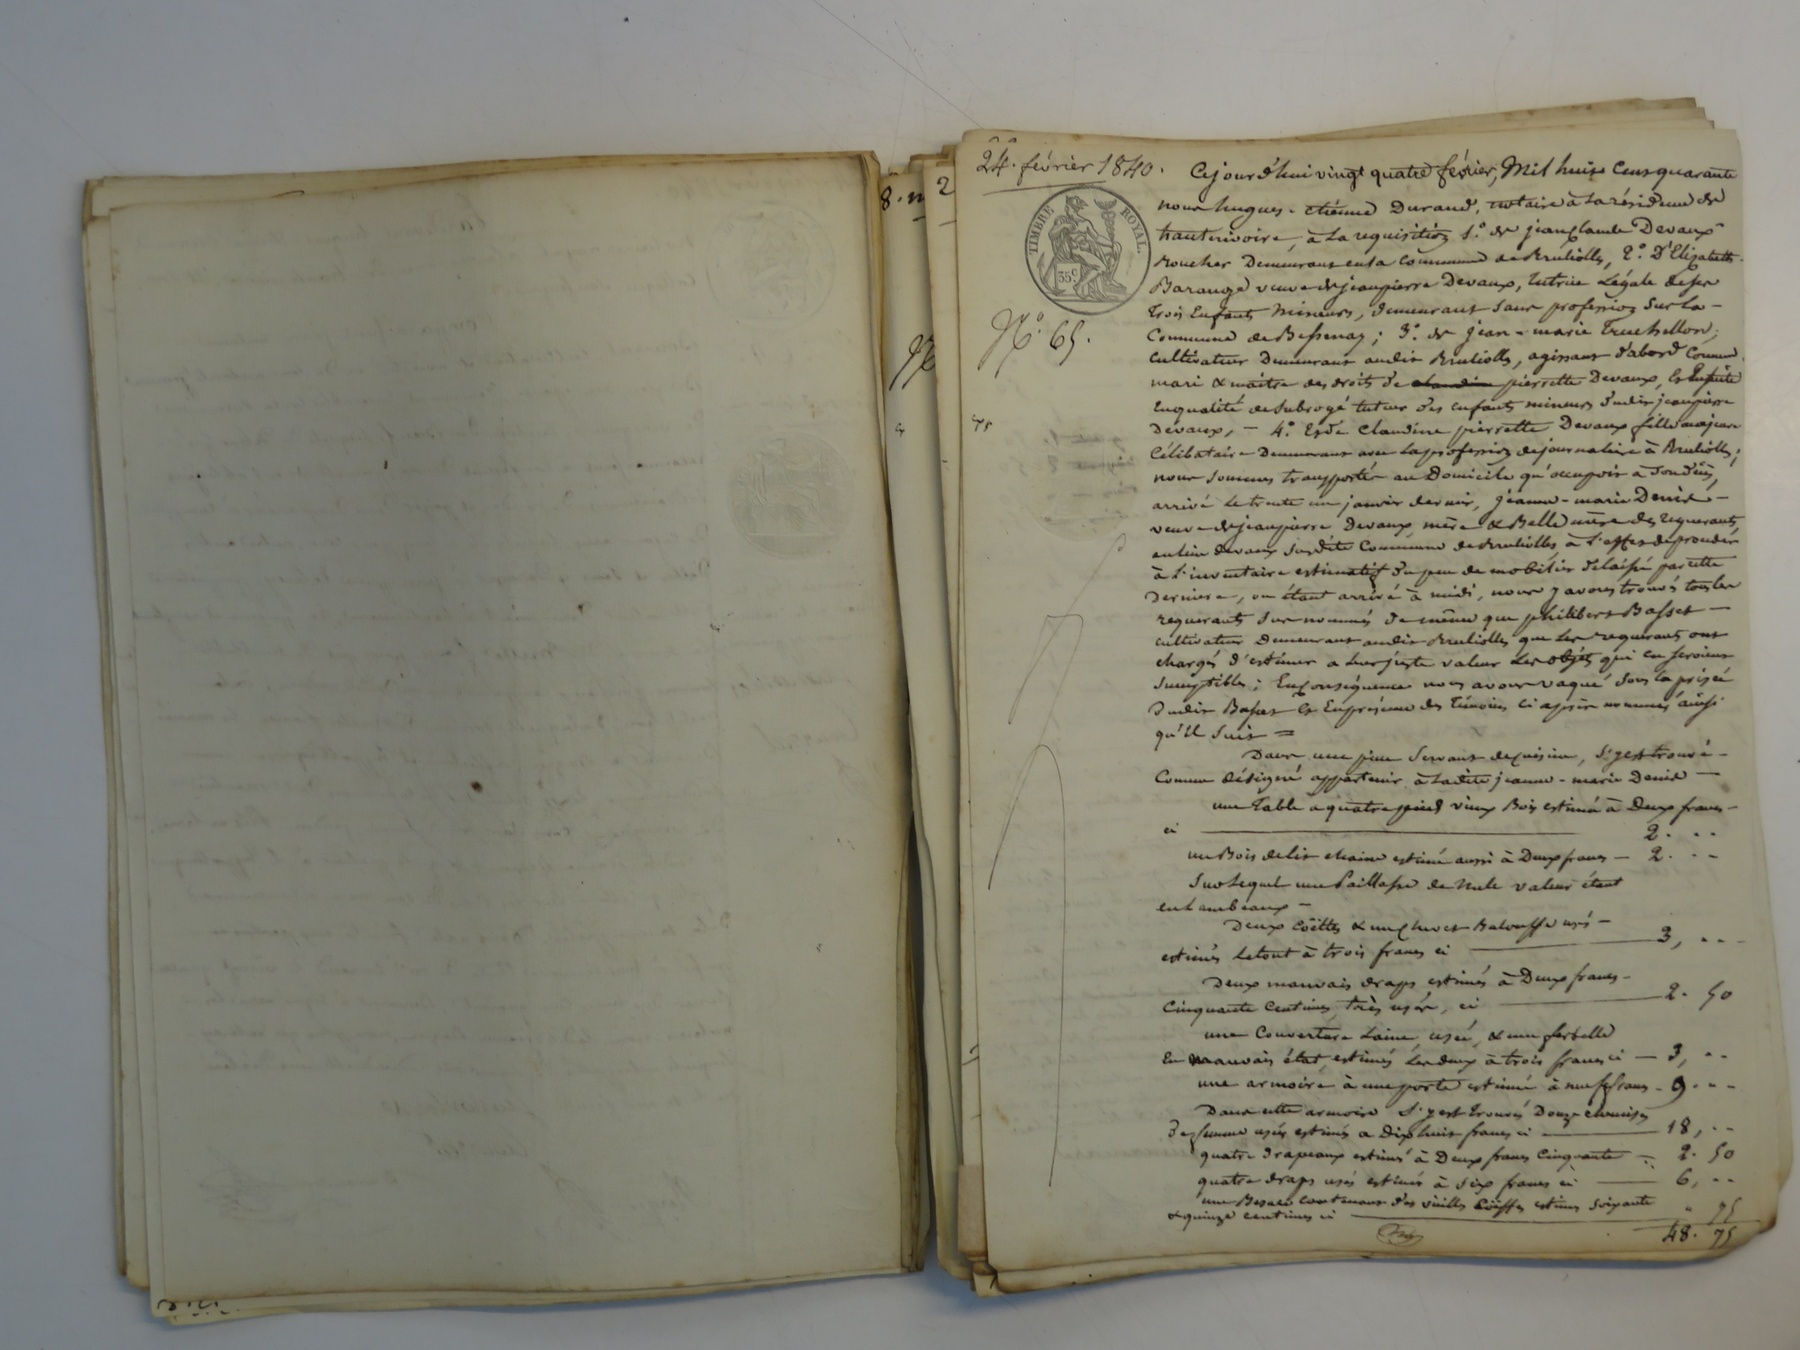 24. février 1840.
TIMBRE ROYAL.
35c
N.o 65.
8.
2
Cejourd'hui vingt quatre février, Mil huit Cent quarante
nous hugues-étienne Durand, notaire à la résidence de
hauterivoire, à la requisition 1.o de jean Claude Devaux
Demeurant en la Commune de Brulioles, 2.o D'Elizabeth
Barange veuve de jeanpierre Devaux, tutrice Légale de ses
trois Enfants Mineurs, demeurant sans profession sur la
Commune de Bessenay; 3.o de jean-marie Truchellon,
cultivateur Demeurant audit Brulioles, agissant d'abord Comme
mari & maître des droits de pierrette Devaux, Et Ensuite
En qualité de Subrogé tuteur des enfants mineurs dudit jeanpierre
Devaux, - 4.o Et de Claudine pierrette Devaux fille majeure
Célibataire Demeurant avec la profession de journalière à Brulioles;
nous sommes transportés au Domicile qu'occupoit à son décès,
arrivé le trente un janvier dernier, jeanne-marie Denis -
veuve de jeanpierre Devaux mère & Belle mère des requerants,
au lieu devaux susdite Commune de Brulioles à l'effet de proceder
à l'inventaire estimatif du peu de mobilier delaissé par cette
derniere, ou étant arrivé à midi, nous y avons trouvés tous les
requerants sus nommés de même que philibert Basset -
cultivateur Demeurant audit Brulioles que les requerants ont
chargés d'estimer a leur juste valeur les objets qui en seroient
susceptibles; En conséquence nous avons vaqué sous la prisée
dudit Basset Et En présence des témoins ci après nommés ainsi
qu'il suit =
Dans une piece Servant de cuisine, s'y est trouvé -
Comme désigné appartenir à ladite jeanne-marie Denis -
une Table a quatre pieds vieux Bois estimée à Deux francs -
ci 2. ..
un Bois de lit chaine estimé aussi à Deux francs - 2. ..
Sur lequel une Paillasse de Nule valeur étant
en Lambeaux -
Deux Coëttes & un Chevet Balouffe usés -
estimés le tout à trois francs ci 3, ..
Deux mauvais draps estimés à Deux francs -
Cinquante Centimes, très usés, ci 2. 50
une Couverture Laine, usée, & une
En mauvais état, estimés Les deux à trois francs ci - 3, ..
une armoire à une porte estimée à neuf francs - 9. ..
Dans cette armoire s'y est trouvés Douze chemises
de femme usés estimés a Dixhuit francs ci 18, ..
quatre drapeaux estimés à Deux francs Cinquante - 2. 50
quatre draps usés estimés à six francs ci 6, ..
une Besace contenant des vieilles Coiffes estimés soixante
& quinze centimes ci " 75
48. 75